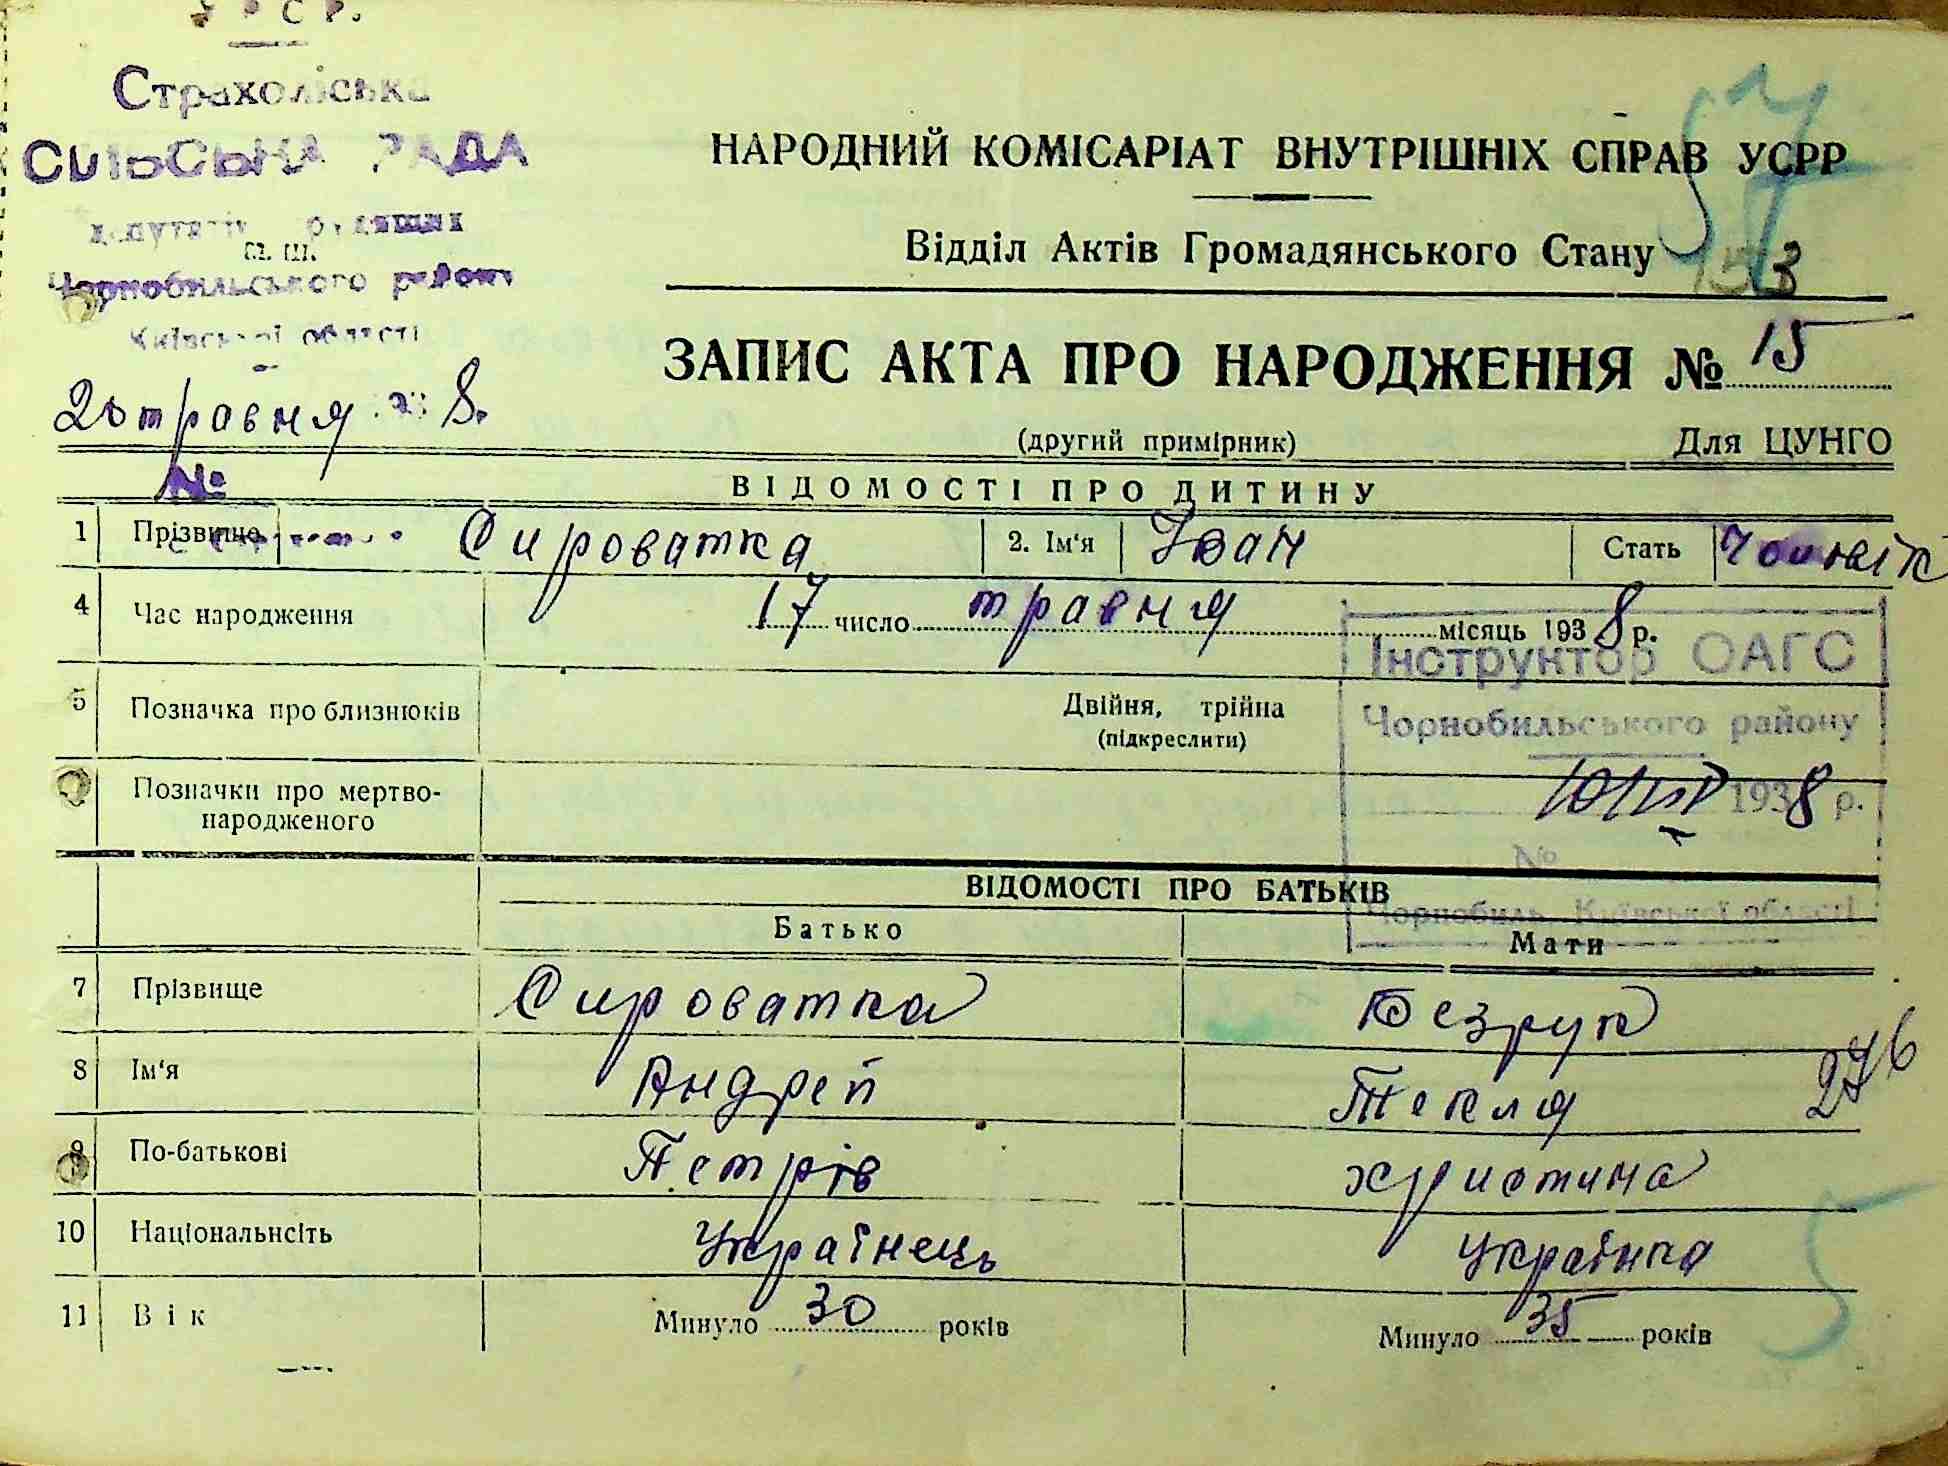 УСРР.
Страхоліська
СІЛЬСЬКА РАДА
депутатів трудящих
Чорнобильського району
Київської області
травня 1938.
№
НАРОДНИЙ КОМІСАРІАТ ВНУТРІШНІХ СПРАВ УСРР
57
Відділ Актів Громадянського Стану
153
ЗАПИС АКТА ПРО НАРОДЖЕННЯ № 15
(другий примірник)
Для ЦУНГО
ВІДОМОСТІ ПРО ДИТИНУ
1 Прізвище Сироватка 2. Ім'я Іван Стать
4 Час народження 17 число травня місяць 1938 р.
Інструктор ОАГС
5 Позначка про близнюків Двійня, трійна
(підкреслити)
Чорнобильського району
Позначки про мертво-
народженого
1938 р.
№
Чорнобиль Київської області
ВІДОМОСТІ ПРО БАТЬКІВ
Батько Мати
7 Прізвище Сироватка Безрук
8 Ім'я Андрей Текля
276
9 По-батькові Петрів христина
10 Національнсіть Українець Українка
11 Вік Минуло 30 років Минуло 35 років
5